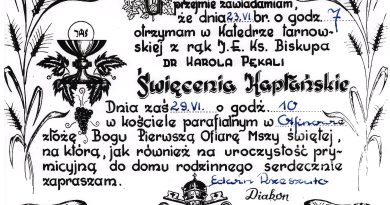 Uprzejmie zawiadamiam,
że dnia 23.VI br. o godz. 7
otrzymam w Katedrze tarnow-
skiej z rąk J.E. Ks. Biskupa
DR KAROLA PĘKALI
Święcenia Kapłańskie
Dnia zaś 29.VI. o godz. 10
w kościele parafialnym w
złożę Bogu Pierwszą Ofiarę Mszy świętej,
na którą, jak również na uroczystość pry-
micyjną do domu rodzinnego serdecznie
zapraszam. Edwin
Diakon
JHS